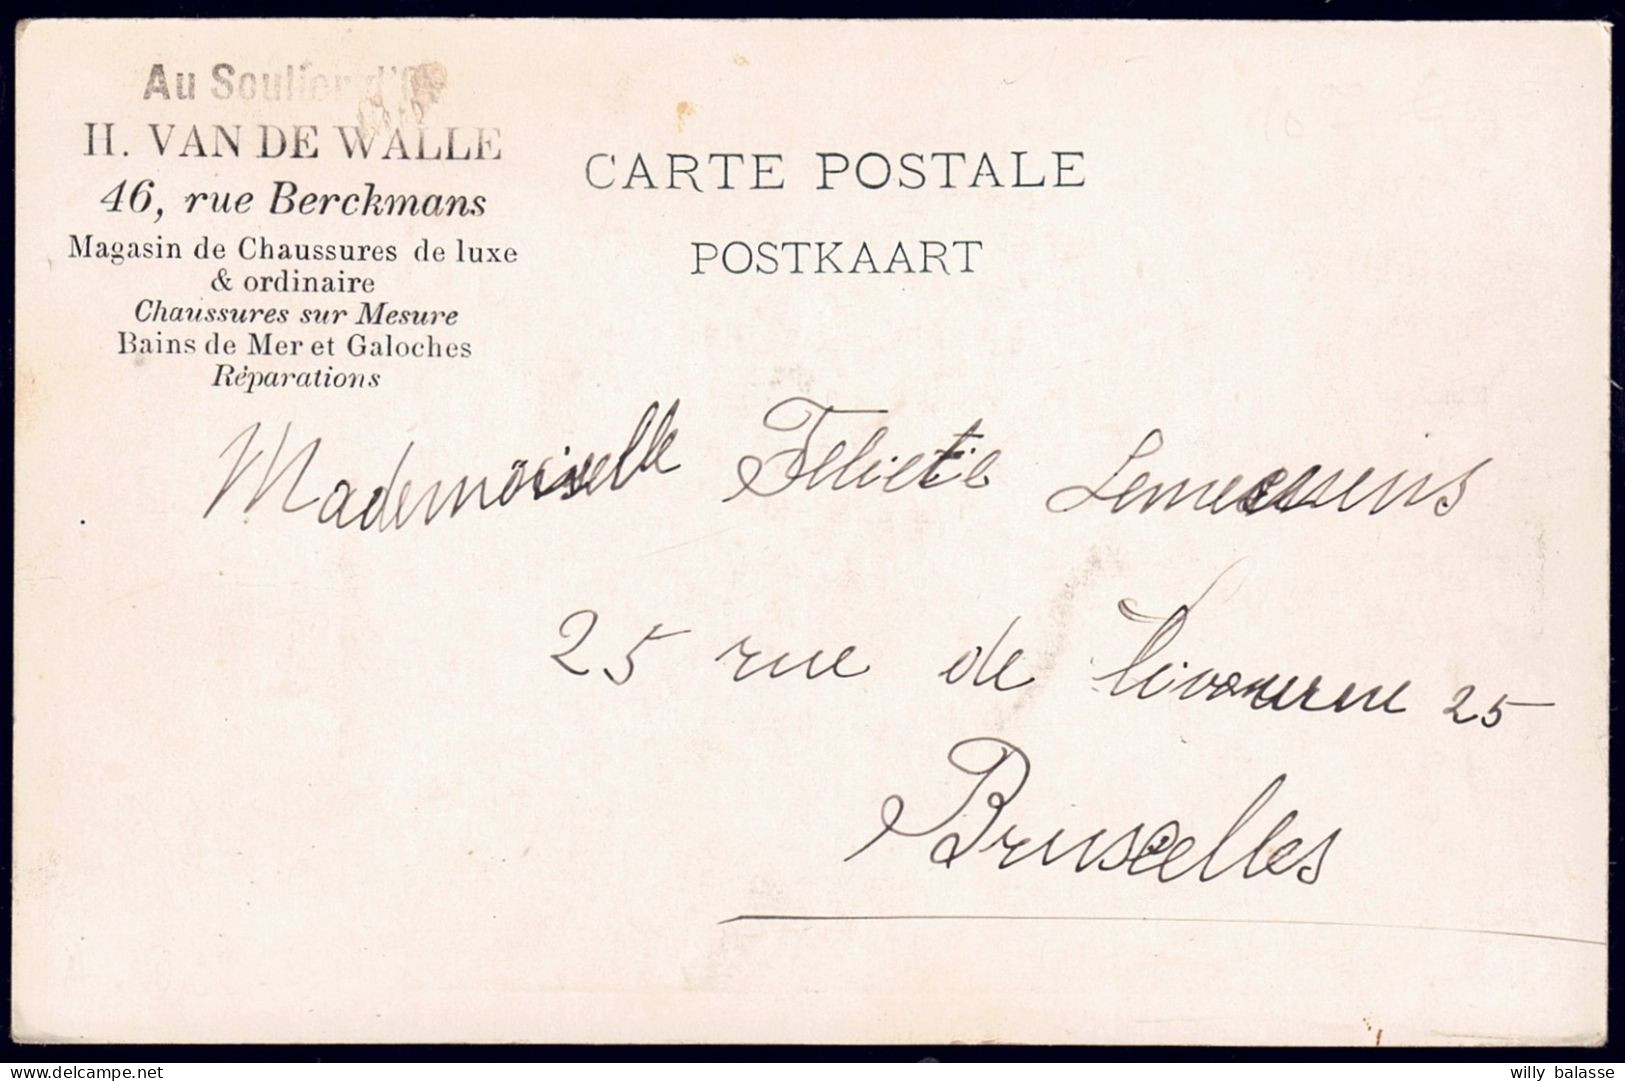 Au Soulier d'Or
H. VAN DE WALLE
46, rue Berckmans
Magasin de Chaussures de luxe
& ordinaire
Chaussures sur Mesure
Bains de Mer et Galoches
Réparations
CARTE POSTALE
POSTKAART
Mademoiselle Felicitie
25 rue de Livourne 25
Bruxelles
delcampe.net
willy balasse